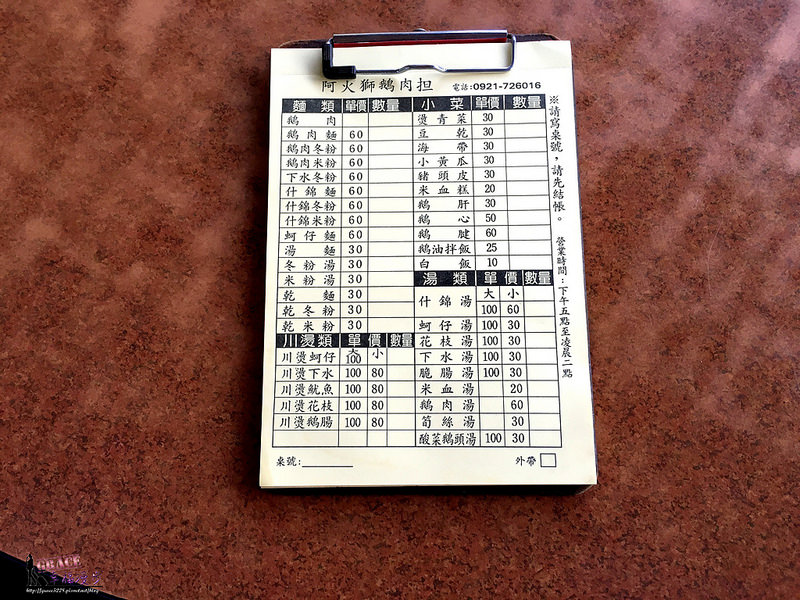 阿火獅鵝肉担 電話:0921-726016
麵類 單價 數量
鵝肉
鵝肉麵 60
鵝肉冬粉 60
鵝肉米粉 60
下水冬粉 60
什錦麵 60
什錦冬粉 60
什錦米粉 60
蚵仔麵 60
湯麵 30
冬粉湯 30
米粉湯 30
乾麵 30
乾冬粉 30
乾米粉 30
川燙類 單價 數量
大 小
川燙蚵仔 100
川燙下水 100 80
川燙魷魚 100 80
川燙花枝 100 80
川燙鵝腸 100 80
小菜 單價 數量
燙青菜 30
豆乾 30
海帶 30
小黃瓜 30
豬頭皮 30
米血糕 20
鵝肝 30
鵝心 50
鵝腱 60
鵝油拌飯 25
白飯 10
湯類 單價 數量
大 小
什錦湯 100 60
蚵仔湯 100 30
花枝湯 100 30
下水湯 100 30
脆腸湯 100 30
米血湯 20
鵝肉湯 60
筍絲湯 30
酸菜鵝頭湯 100 30
※請寫桌號，請先結帳。
營業時間：下午五點至凌晨二點
桌號:
外帶
GRACE